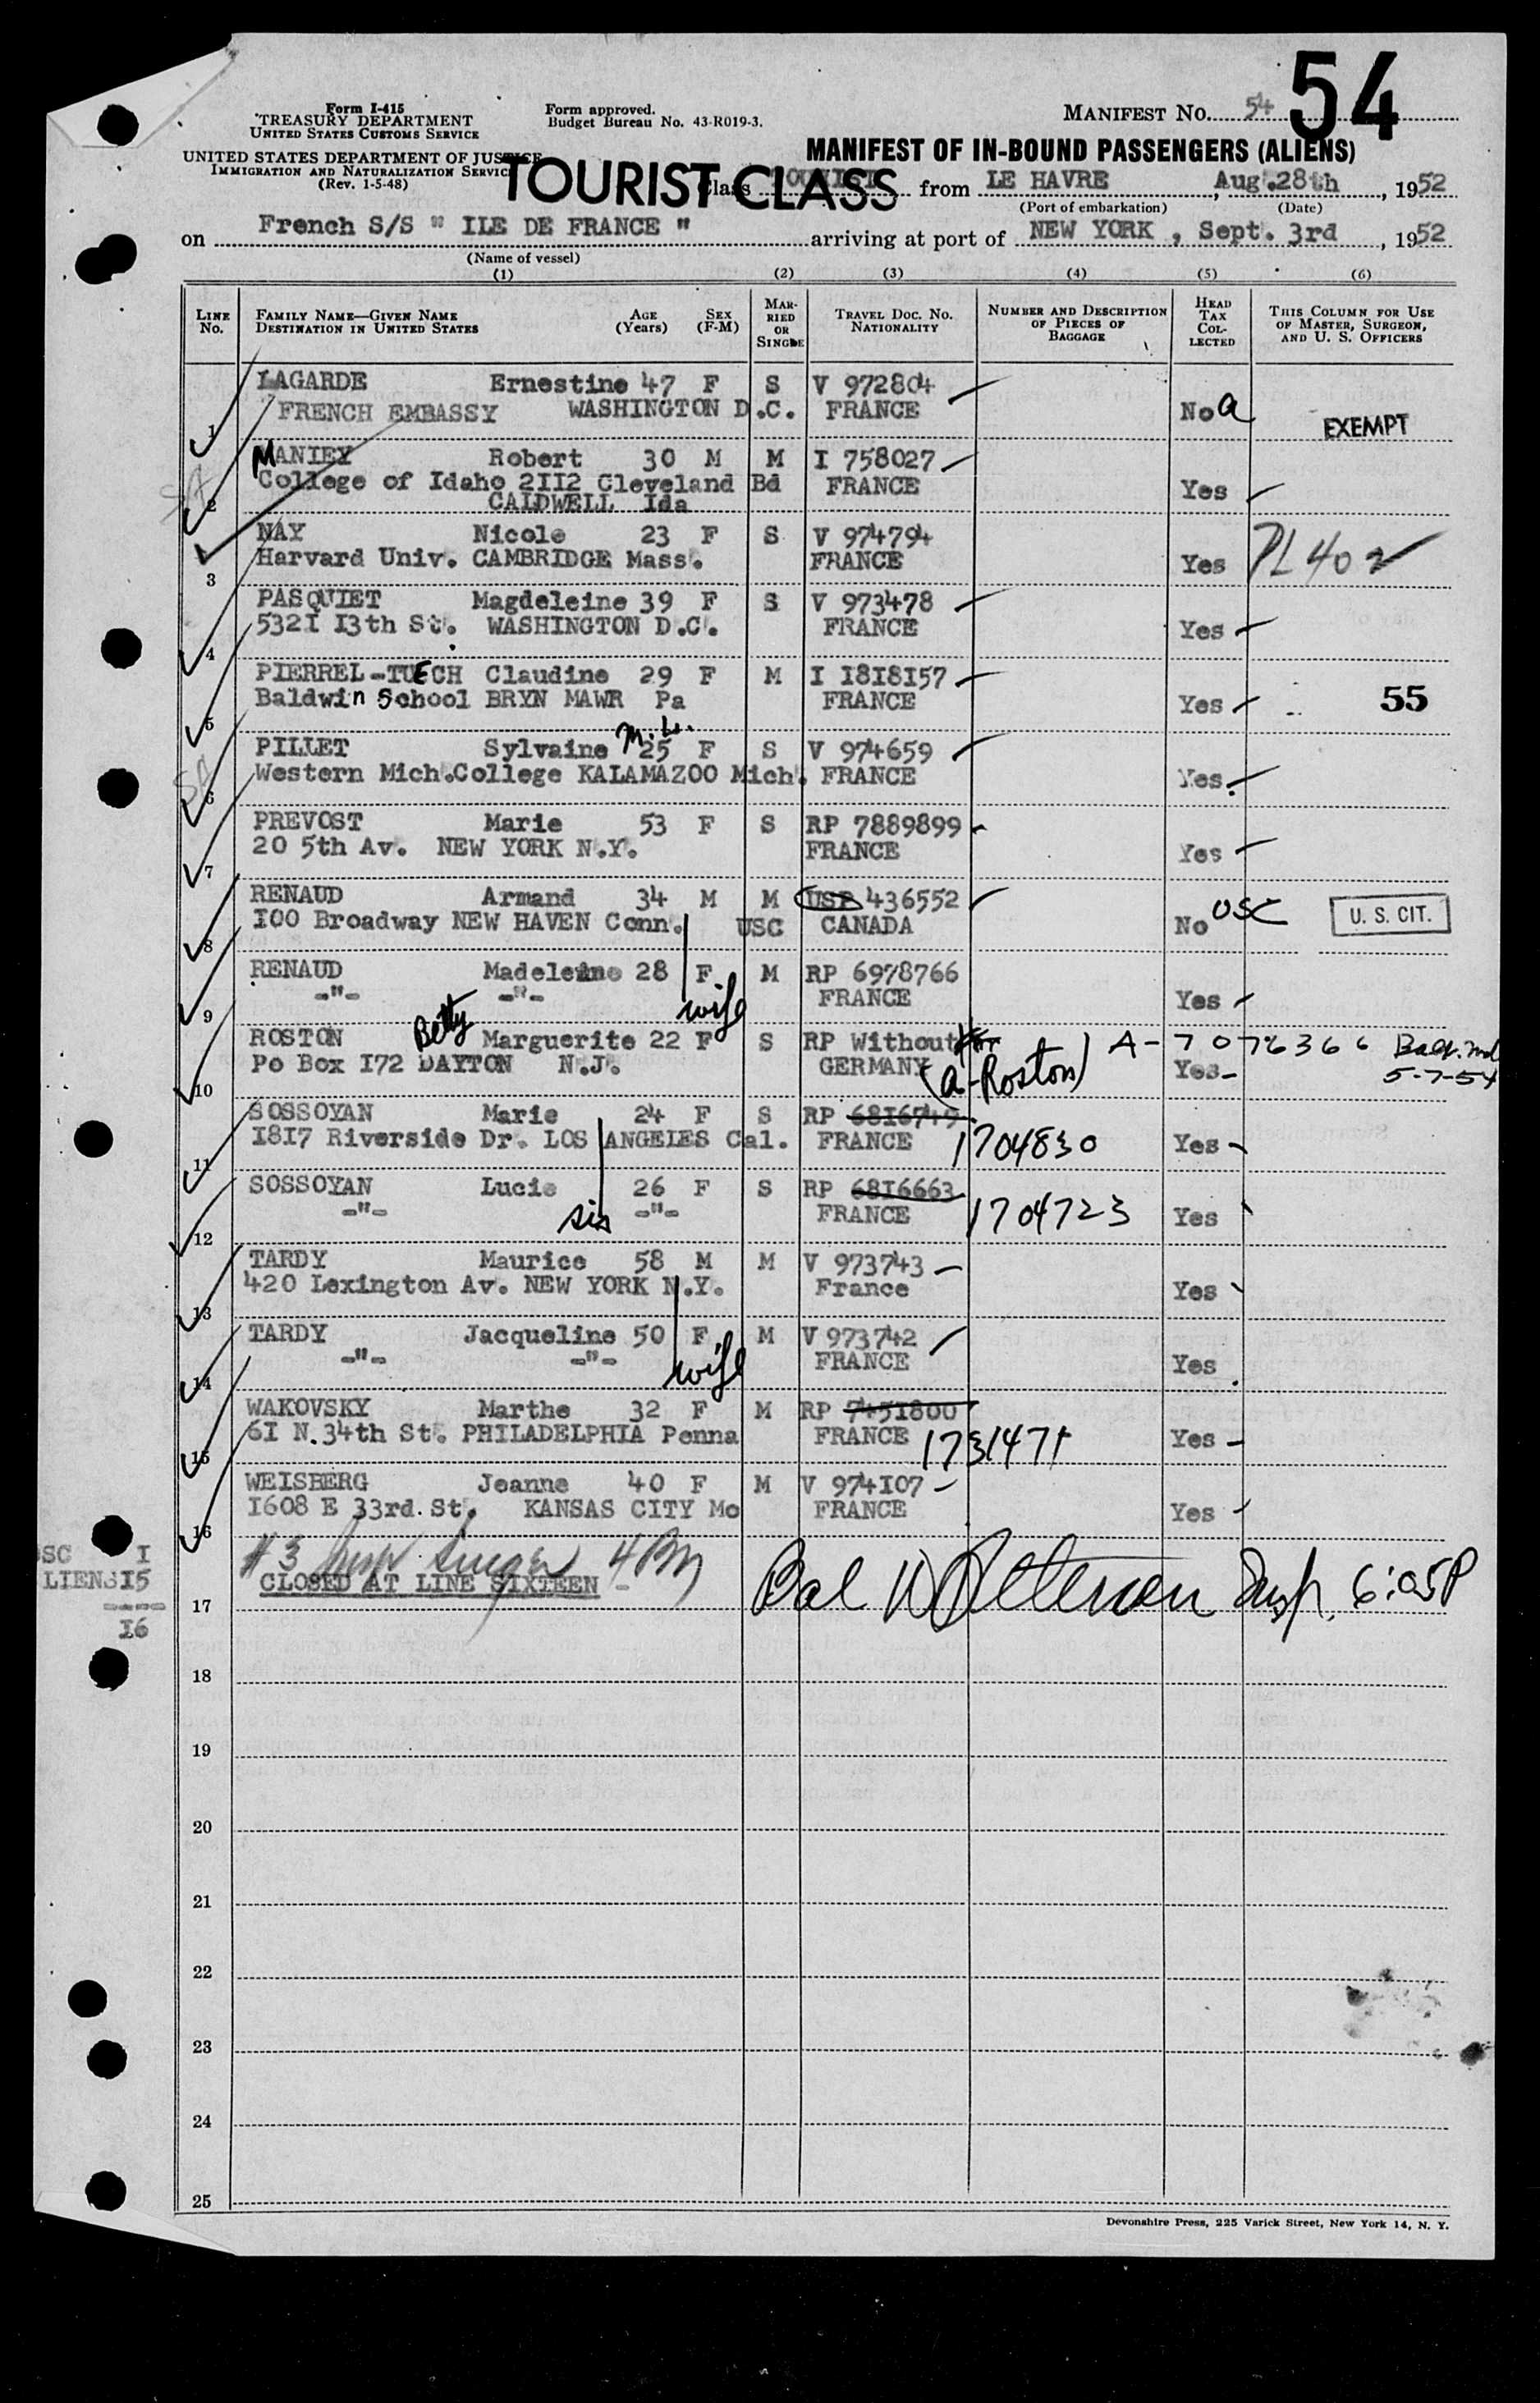 Form I-415
TREASURY DEPARTMENT
UNITED STATES CUSTOMS SERVICE
Form approved.
Budget Bureau No. 43-R019-3.
MANIFEST NO. 54 54
UNITED STATES DEPARTMENT OF JUSTICE
IMMIGRATION AND NATURALIZATION SERVICE
(Rev. 1-5-48)
MANIFEST OF IN-BOUND PASSENGERS (ALIENS)
TOURIST CLASS
Class TOURIST from LE HAVRE, Aug. 28th, 1952
(Port of embarkation) (Date)
on French S/S " ILE DE FRANCE " arriving at port of NEW YORK, Sept. 3rd, 1952
(Name of vessel)
(1) (2) (3) (4) (5) (6)
LINE No. FAMILY NAME—GIVEN NAME DESTINATION IN UNITED STATES AGE (Years) SEX (F-M) MARRIED OR SINGLE TRAVEL DOC. NO. NATIONALITY NUMBER AND DESCRIPTION OF PIECES OF BAGGAGE HEAD TAX COLLECTED THIS COLUMN FOR USE OF MASTER, SURGEON, AND U. S. OFFICERS
LAGARDE Ernestine 47 F S V 972804
1 FRENCH EMBASSY WASHINGTON D.C. FRANCE No a EXEMPT
MANIEY Robert 30 M M I 758027
College of Idaho 2II2 Cleveland Bd FRANCE Yes
2 CALDWELL Ida
NAY Nicole 23 F S V 974794
3 Harvard Univ. CAMBRIDGE Mass. FRANCE Yes PL 402
PASQUIET Magdeleine 39 F S V 973478
4 532I I3th St. WASHINGTON D.C. FRANCE Yes
PIERREL-TUECH Claudine 29 F M I I8I8I57
5 Baldwin School BRYN MAWR Pa FRANCE Yes 55
M.L.
PILLET Sylvaine 25 F S V 974659
6 Western Mich.College KALAMAZOO Mich. FRANCE Yes
PREVOST Marie 53 F S RP 7889899
7 20 5th Av. NEW YORK N.Y. FRANCE Yes
RENAUD Armand 34 M M USP 436552
8 I00 Broadway NEW HAVEN Conn. USC CANADA No USC U. S. CIT.
RENAUD Madeleine 28 F M RP 6978766
9 -"- -"- wife FRANCE Yes
ROSTON Betty Marguerite 22 F S RP Without A-7076366 Balt. Md
10 Po Box I72 DAYTON N.J. GERMANY (a-Roston) Yes 5-7-54
SOSSOYAN Marie 24 F S RP 68I6749
11 I8I7 Riverside Dr. LOS ANGELES Cal. FRANCE 1704830 Yes
SOSSOYAN Lucie 26 F S RP 68I6663
12 -"- sis -"- FRANCE 1704723 Yes
TARDY Maurice 58 M M V 973743
13 420 Lexington Av. NEW YORK N.Y. France Yes
TARDY Jacqueline 50 F M V 973742
14 -"- -"- wife FRANCE Yes
WAKOVSKY Marthe 32 F M RP 745I800
15 6I N.34th St. PHILADELPHIA Penna FRANCE 1731471 Yes
WEISBERG Jeanne 40 F M V 974I07
16 I608 E 33rd.St. KANSAS CITY Mo FRANCE Yes
SC I
LIENS I5
----
I6
#3
CLOSED AT LINE SIXTEEN -
17 Insp. 6:05P
18
19
20
21
22
23
24
25
Devonshire Press, 225 Varick Street, New York 14, N. Y.